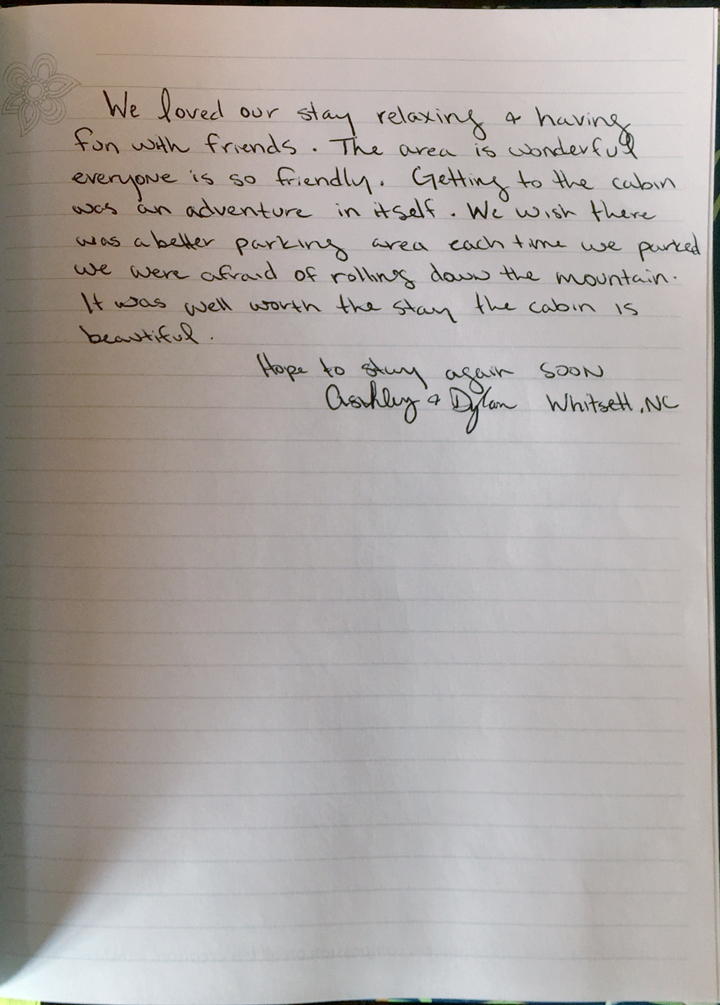 We loved our stay relaxing & having
fun with friends. The area is wonderful
everyone is so friendly. Getting to the cabin
was an adventure in itself. We wish there
was a better parking area each time we parked
we were afraid of rolling down the mountain.
It was well worth the stay the cabin is
beautiful.
Hope to stay again soon
Ashley & Dylan Whitsett, NC